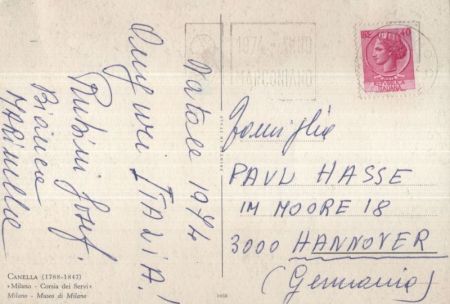 Natale 1974
Auguri ITALIA!
Rubini Josef
Bianca
MARINELLA
CANELLA (1788-1847)
«Milano - Corsia dei Servi»
Milano - Museo di Milano
PRINTED IN ITALY
1974
40
Famiglia
PAUL HASSE
IM MOORE 18
3000 HANNOVER
(Germania)